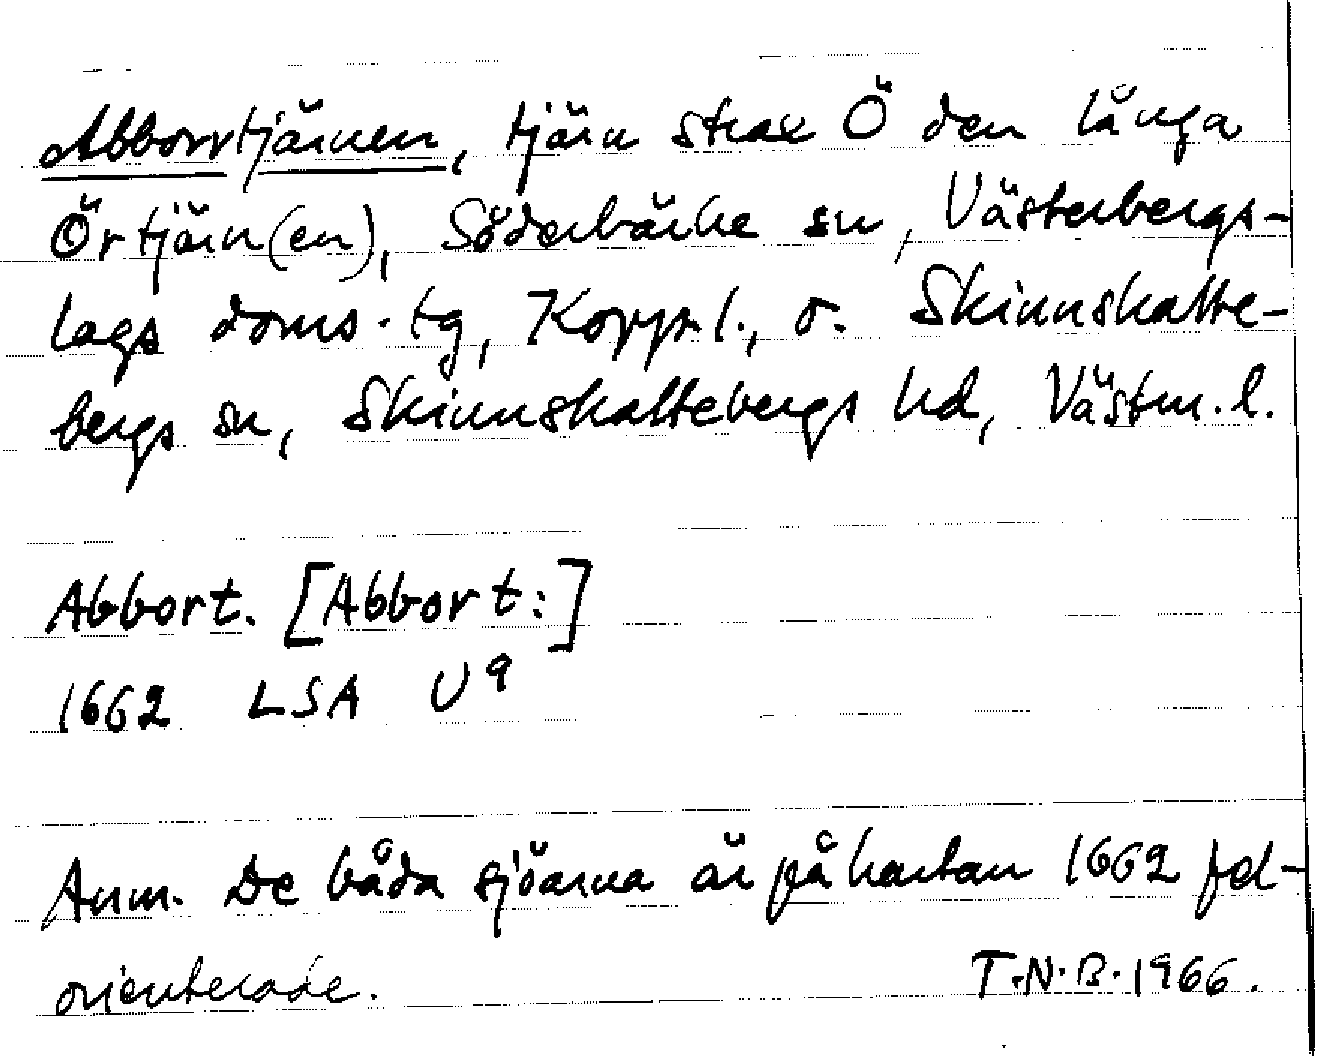 Abborrtjärnen, tjärn strax Ö den långa
Örtjärn(en), Söderbärke sn, Västerbergs-
lags doms. tg, Kopp. l., o. Skinnskatte-
bergs sn, Skinnskattebergs hd, Västm. l.
Abbort. [Abbort:]
1662 LSA U9
Anm. De båda sjöarna är på kartan 1662 fel-
orienterade.
T.N.B. 1966.